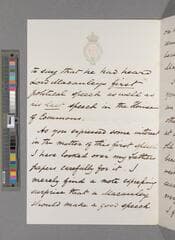 to say that he had heard
Lord Macaulay's first
political speech as well as
his last speech in the House
of Commons.
As you expressed some interest
in the matter of this first speech
I have looked over my father's
papers carefully for it I
merely find a note expressing
surprise that a Macaulay
should make a good speech